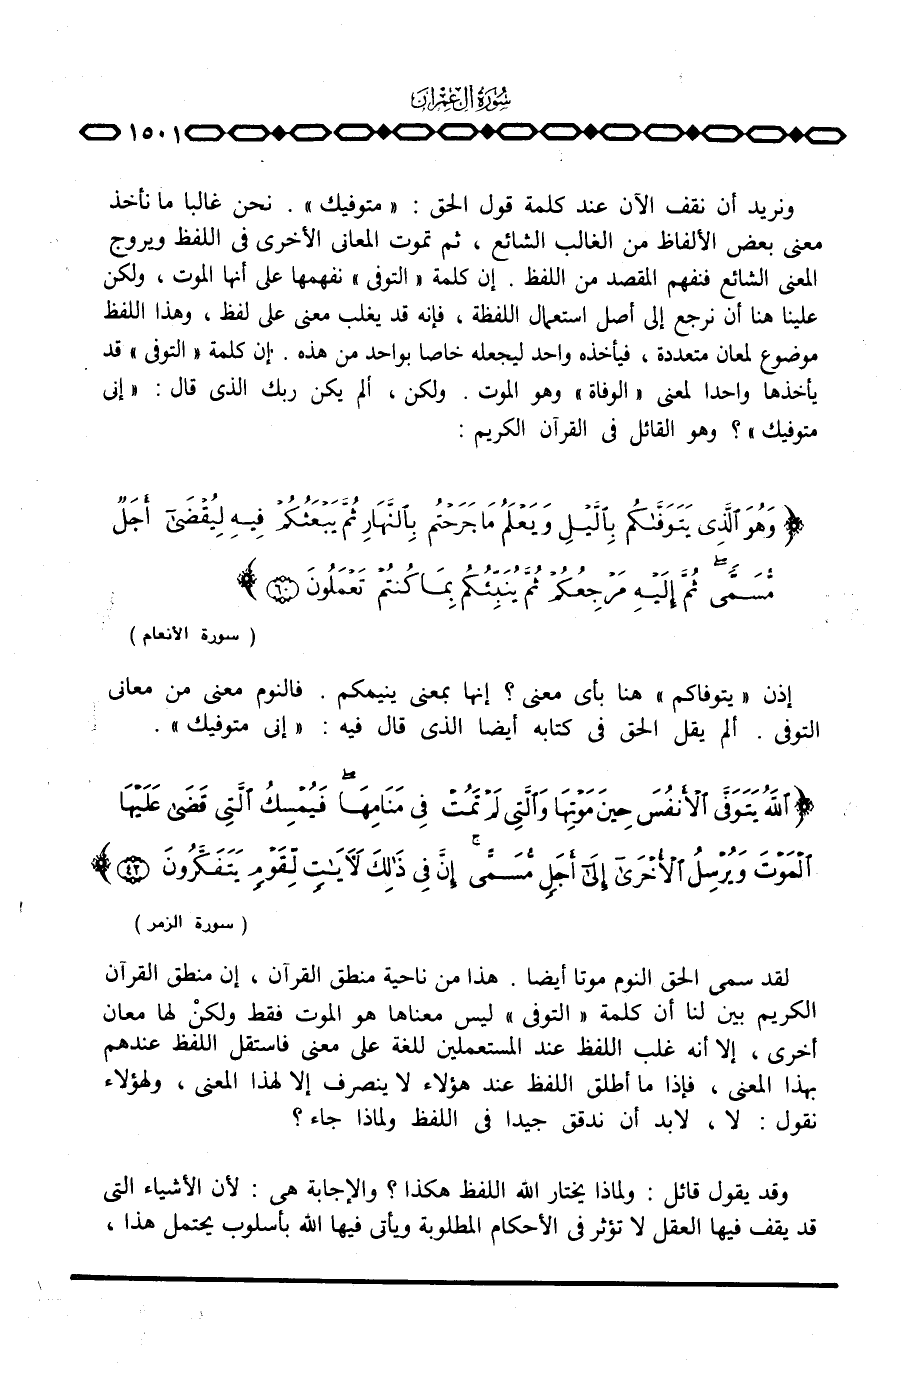 سورة آل عمران
١٥٠١
ونريد أن نقف الآن عند كلمة قول الحق : « متوفيك » . نحن غالبا ما نأخذ
معنى بعض الألفاظ من الغالب الشائع ، ثم تموت المعانى الأخرى فى اللفظ ويروج
المعنى الشائع فنفهم المقصد من اللفظ . إن كلمة « التوفى » نفهمها على أنها الموت ، ولكن
علينا هنا أن نرجع إلى أصل استعمال اللفظة ، فإنه قد يغلب معنى على لفظ ، وهذا اللفظ
موضوع لمعان متعددة ، فيأخذه واحد ليجعله خاصا بواحد من هذه . إن كلمة « التوفى » قد
يأخذها واحدا لمعنى « الوفاة » وهو الموت . ولكن ، ألم يكن ربك الذى قال : « إنى
متوفيك » ؟ وهو القائل فى القرآن الكريم :
﴿ وَهُوَ ٱلَّذِى يَتَوَفَّىٰكُم بِٱلَّيْلِ وَيَعْلَمُ مَا جَرَحْتُم بِٱلنَّهَارِ ثُمَّ يَبْعَثُكُمْ فِيهِ لِيُقْضَىٰٓ أَجَلٌ
مُّسَمًّى ۖ ثُمَّ إِلَيْهِ مَرْجِعُكُمْ ثُمَّ يُنَبِّئُكُم بِمَا كُنتُمْ تَعْمَلُونَ ٦٠ ﴾
( سورة الأنعام )
إذن « يتوفاكم » هنا بأى معنى ؟ إنها بمعنى ينيمكم . فالنوم معنى من معانى
التوفى . ألم يقل الحق فى كتابه أيضا الذى قال فيه : « إنى متوفيك » .
﴿ ٱللَّهُ يَتَوَفَّى ٱلْأَنفُسَ حِينَ مَوْتِهَا وَٱلَّتِى لَمْ تَمُتْ فِى مَنَامِهَا ۖ فَيُمْسِكُ ٱلَّتِى قَضَىٰ عَلَيْهَا
ٱلْمَوْتَ وَيُرْسِلُ ٱلْأُخْرَىٰٓ إِلَىٰٓ أَجَلٍ مُّسَمًّى ۚ إِنَّ فِى ذَٰلِكَ لَآيَٰتٍ لِّقَوْمٍ يَتَفَكَّرُونَ ٤٢ ﴾
( سورة الزمر )
لقد سمى الحق النوم موتا أيضا . هذا من ناحية منطق القرآن ، إن منطق القرآن
الكريم بين لنا أن كلمة « التوفى » ليس معناها هو الموت فقط ولكنْ لها معان
أخرى ، إلا أنه غلب اللفظ عند المستعملين للغة على معنى فاستقل اللفظ عندهم
بهذا المعنى ، فإذا ما أطلق اللفظ عند هؤلاء لا ينصرف إلا لهذا المعنى ، ولهؤلاء
نقول : لا ، لابد أن ندقق جيدا فى اللفظ ولماذا جاء ؟
وقد يقول قائل : ولماذا يختار الله اللفظ هكذا ؟ والإجابة هى : لأن الأشياء التى
قد يقف فيها العقل لا تؤثر فى الأحكام المطلوبة ويأتى فيها الله بأسلوب يحتمل هذا ،